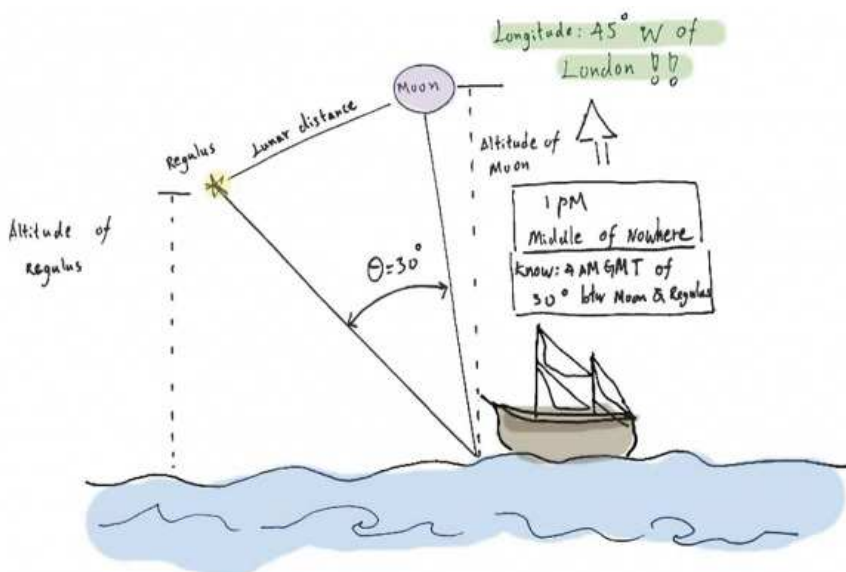 Longitude: 45° W of
London !!
Moon
Lunar distance
Regulus
Altitude of
Moon
Altitude of
Regulus
θ=30°
1 PM
Middle of Nowhere
Know: 4 AM GMT of
30° btw Moon & Regulus